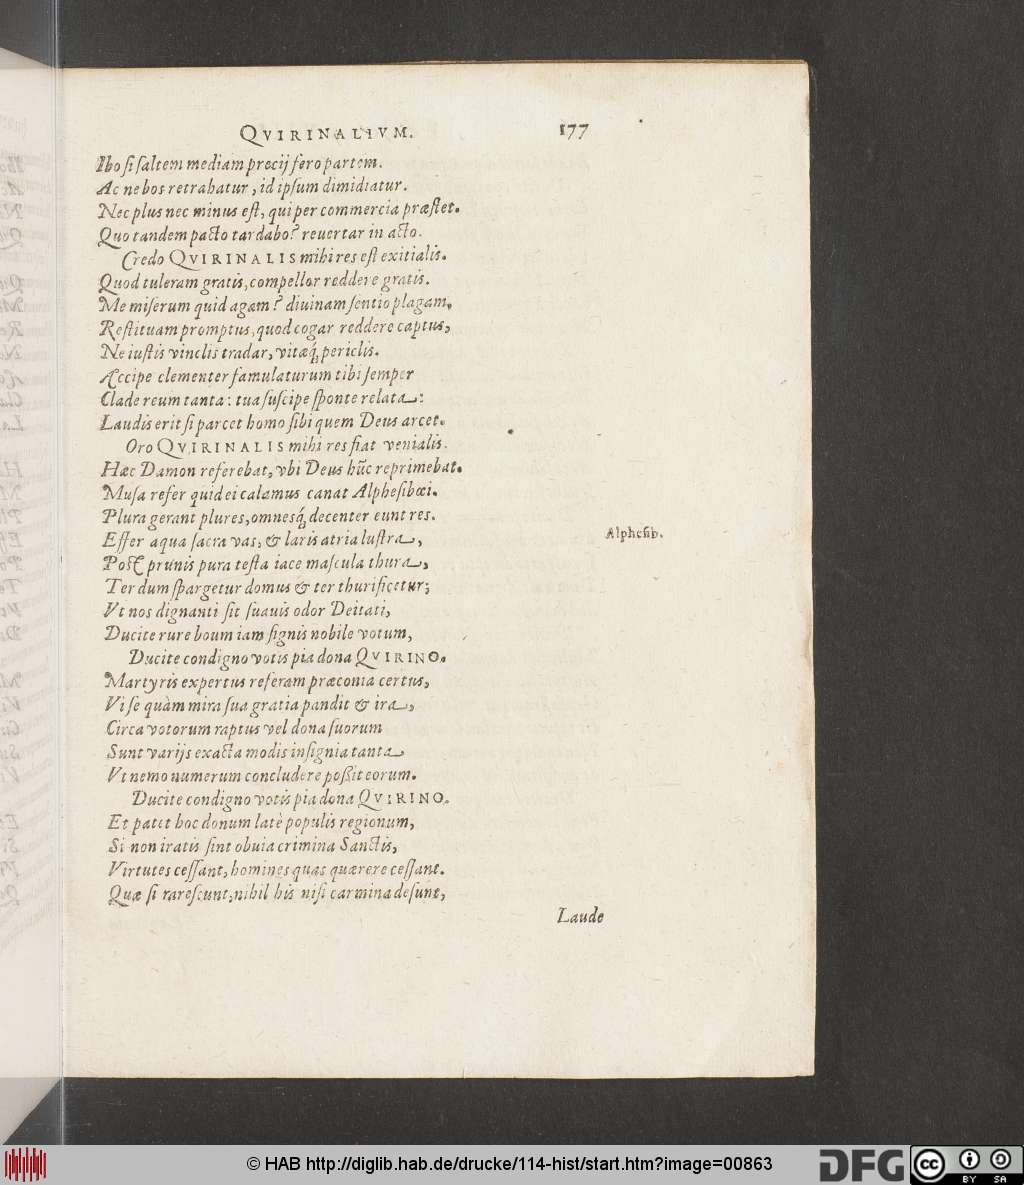 QVIRINALIVM. 177
Ibo si saltem mediam precij fero partem.
Ac ne bos retrahatur, id ipsum dimidiatur.
Nec plus nec minus est, qui per commercia præstet.
Quo tandem pacto tardabo? reuertar in acto.
Credo QVIRINALIS mihi res est exitialis.
Quod tuleram gratis, compellor reddere gratis.
Me miserum quid agam? diuinam sentio plagam.
Restituam promptus, quod cogar reddere captus,
Ne iustis vinclis tradar, vitæq́ periclis.
Accipe clementer famulaturum tibi semper
Clade reum tanta: tua suscipe sponte relata:
Laudis erit si parcet homo sibi quem Deus arcet.
Oro QVIRINALIS mihi res fiat venialis.
Hæc Damon referebat, vbi Deus hūc reprimebat.
Musa refer quid ei calamus canat Alphesibœi.
Plura gerant plures, omnesq́ decenter eunt res.
Effer aqua sacra vas, & laris atria lustra,
Post prunis pura testa iace mascula thura,
Ter dum spargetur domus & ter thurificetur;
Vt nos dignanti sit suauis odor Deitati,
Ducite rure boum iam signis nobile votum,
Ducite condigno votis pia dona QVIRINO.
Martyris expertus referam præconia certus,
Vi se quàm mira sua gratia pandit & ira,
Circa votorum raptus vel dona suorum
Sunt varijs exacta modis insignia tanta
Vt nemo numerum concludere poßit eorum.
Ducite condigno votis pia dona QVIRINO.
Et patet hoc donum latè populis regionum,
Si non iratis sint obuia crimina Sanctis,
Virtutes cessant, homines quas quærere cessant.
Quæ si rarescunt, nihil his nisi carmina desunt,
Alphesib.
Laude
© HAB http://diglib.hab.de/drucke/114-hist/start.htm?image=00863
DFG
cc BY SA